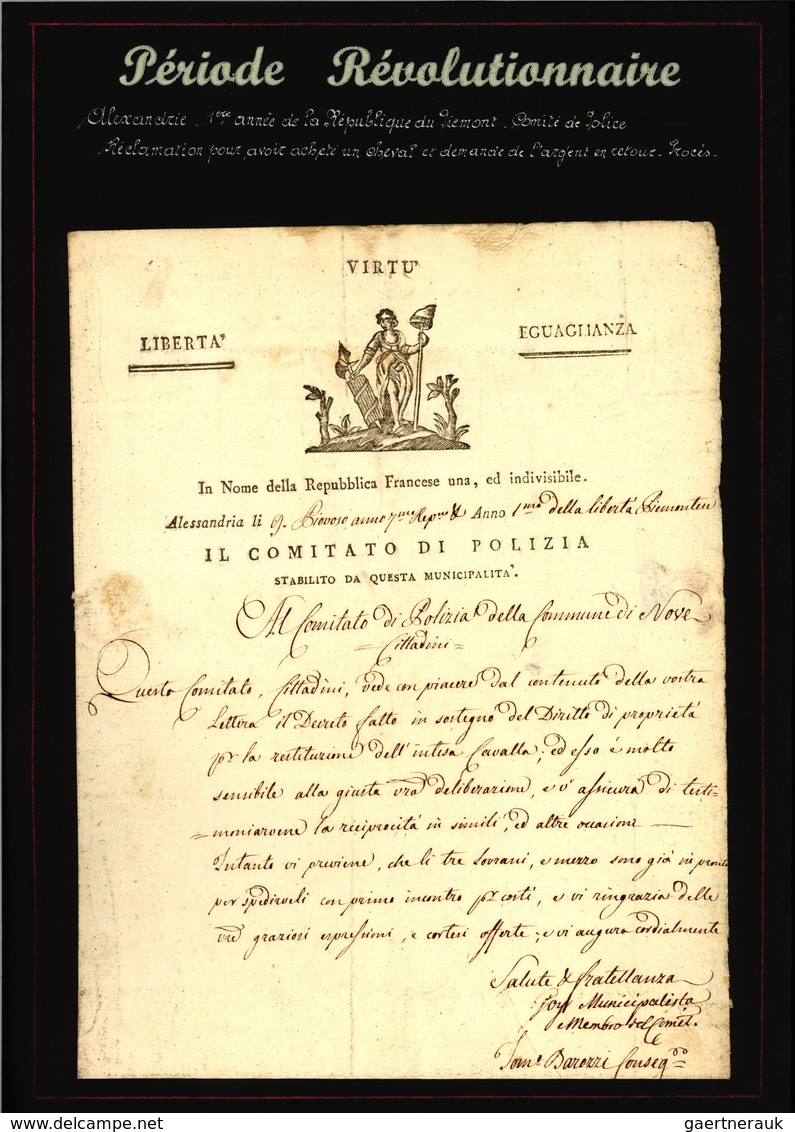 Période Révolutionnaire
Alexandrie. 1ère année de la République du Piemont. Comité de Police
Réclamation pour avoir acheté un cheval et demande de l'argent en retour. Procès.
VIRTU'
LIBERTA'
EGUAGLIANZA
In Nome della Repubblica Francese una, ed indivisibile.
Alessandria li 9. Piovoso anno 7.mo Rep.no & Anno 1.mo della libertà Piemontese
IL COMITATO DI POLIZIA
STABILITO DA QUESTA MUNICIPALITA'.
Al Comitato di Polizia della Commune di Nove
=Cittadini=
Questo Comitato, Cittadini, vede con piacere dal contenuto della vostra
Lettera il Decreto fatto in sostegno del Diritto di proprietà
pr la restituzione dell'intesa Cavalla; ed esso é molto
sensibile alla giusta vrã deliberazione, e v'assicura di testi=
=moniarvene la reciprocità in simili, ed altre occasioni
Intanto vi previene, che li tre Sovrani, e mezzo sono già in pronto
per spedirveli con primo incontro pr costì, e vi ringrazia delle
vrẽ graziosi espressioni, e cortesi offerte; e vi augura cordialmente
Salute & fratellanza
Municipalista
e Membro del Comit.
Barozzi Conseg.
gaertnerauk